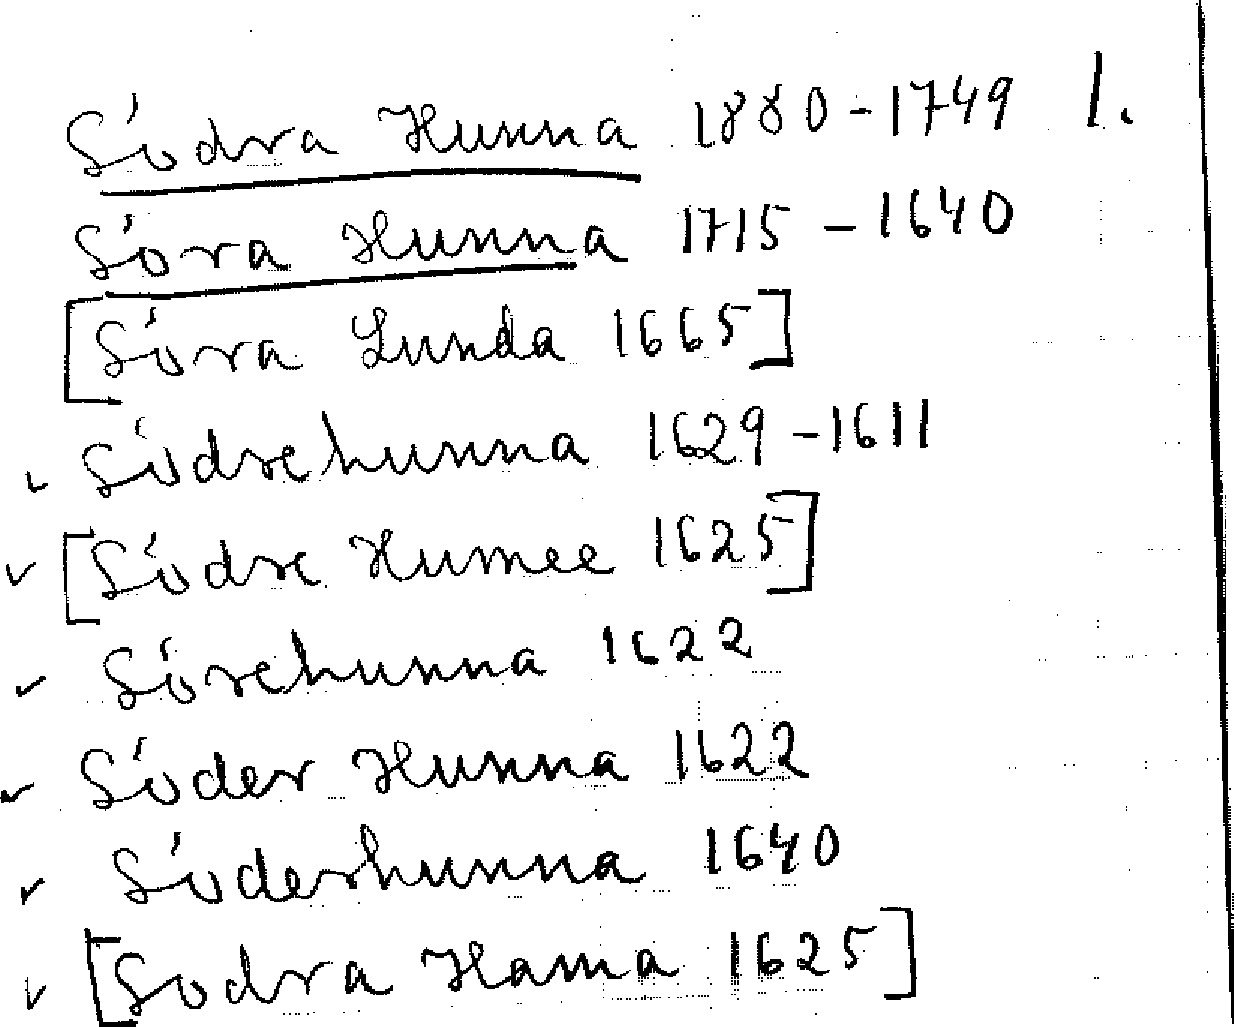 Södra Hunna 1880-1749 1.
Söra Hunna 1715-1640
[Söra Lunda 1665]
Södrehunna 1629-1611
[Södre Humee 1625]
Sörehunna 1622
Söder Hunna 1622
Söderhunna 1640
[Sodra Hama 1625]